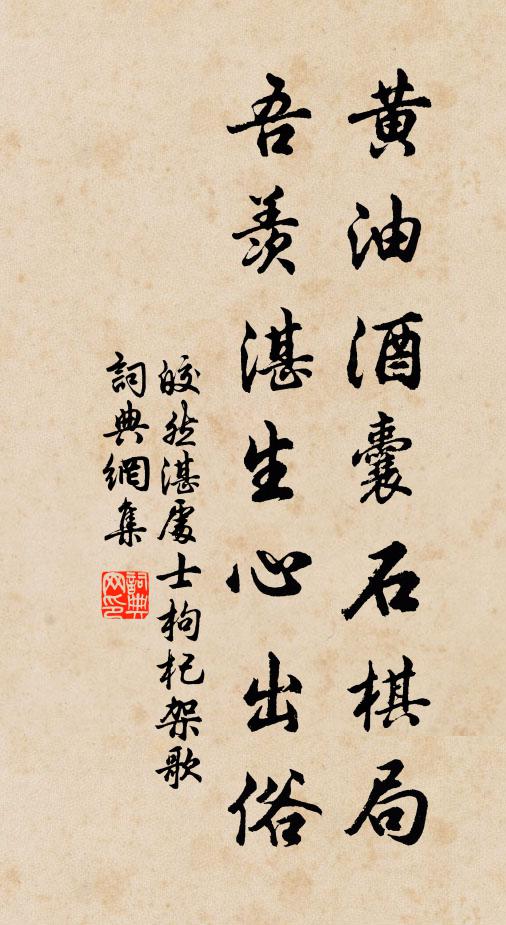 黄油酒囊石棋局
吾羨湛生心出俗
皎然湛處士枸杞架歌
詞典網集
詞典
网印